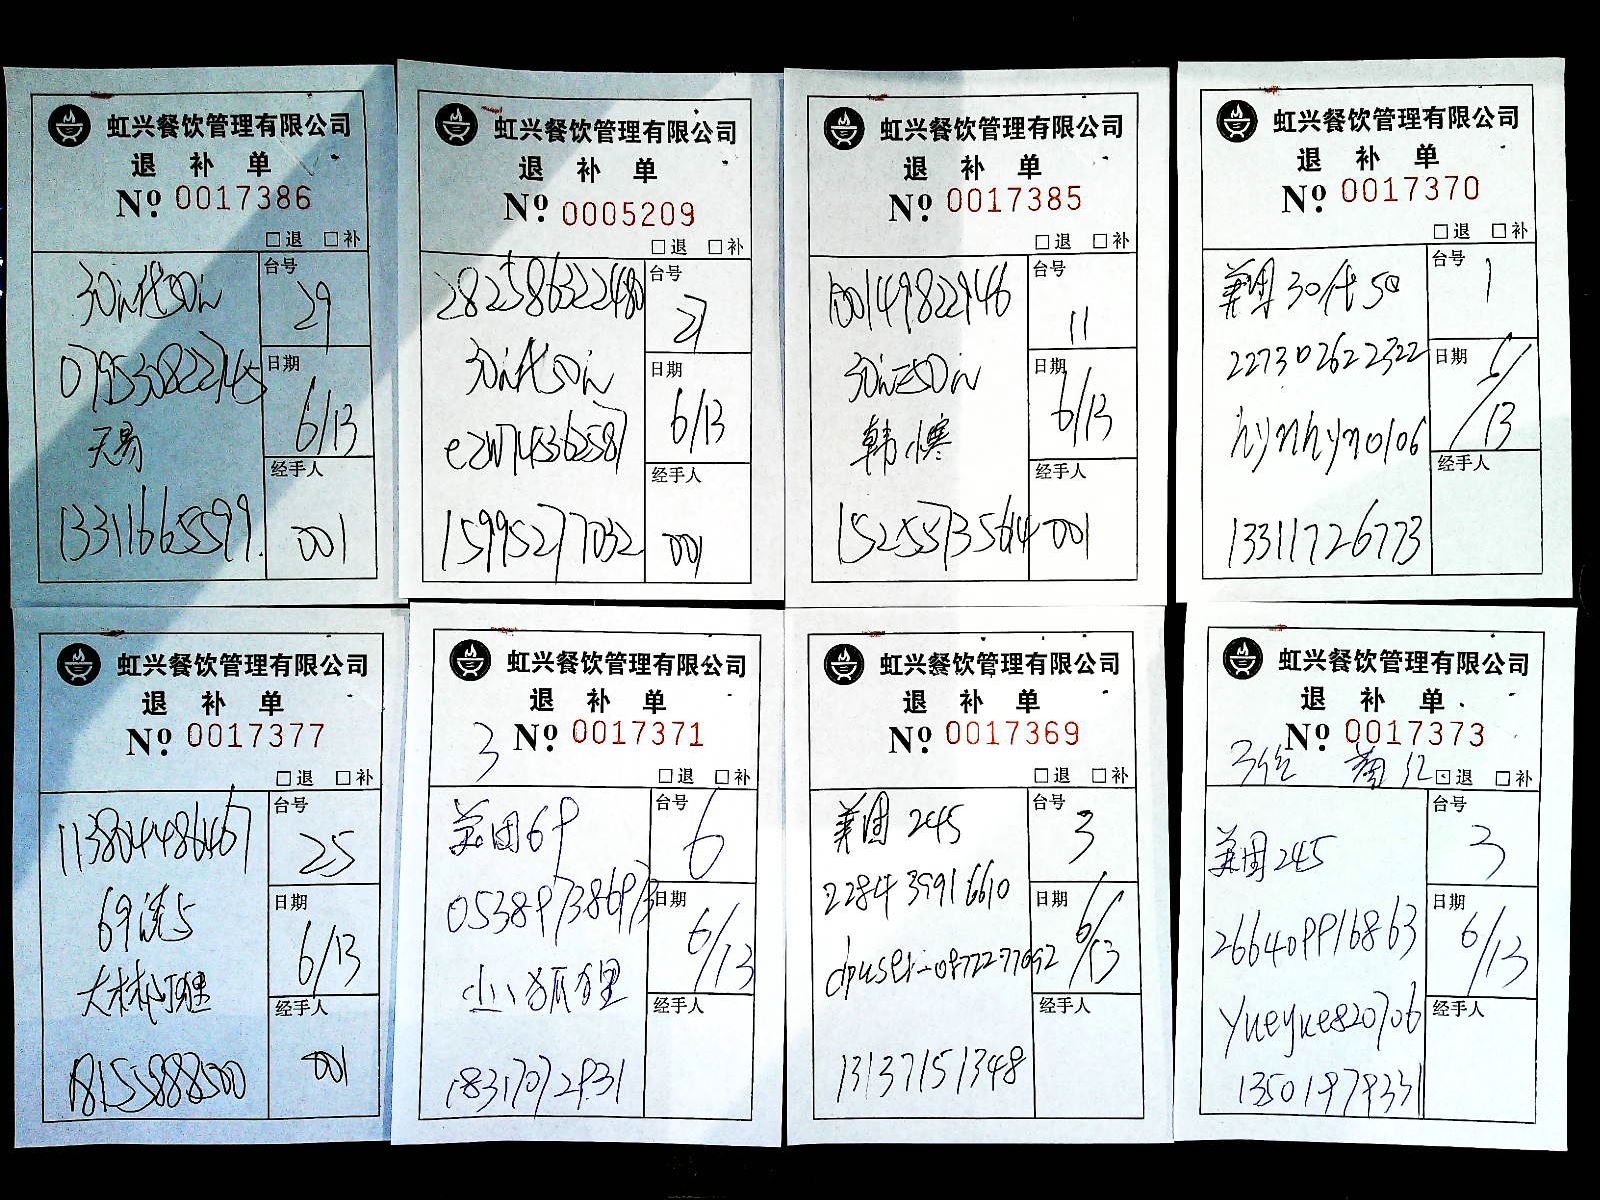 虹兴餐饮管理有限公司
退 补 单
№ 0017386
□退 □补
台号
29
日期
6/13
天易
经手人
13311665599
001
虹兴餐饮管理有限公司
退 补 单
№ 0005209
□退 □补
2825863222480
台号
21
日期
6/13
经手人
15995277032
001
虹兴餐饮管理有限公司
退 补 单
№ 0017385
□退 □补
1001498229146
台号
11
日期
6/13
韩小寒
经手人
15255735614
001
虹兴餐饮管理有限公司
退 补 单
№ 0017370
□退 □补
美团30代50
台号
1
227302622322
日期
6/13
hynhyn0106
经手人
13311726773
虹兴餐饮管理有限公司
退 补 单
№ 0017377
□退 □补
台号
25
日期
69选5
6/13
经手人
18155888500
001
虹兴餐饮管理有限公司
退 补 单
№ 0017371
3
□退 □补
美团69
台号
6
053897386973
日期
6/13
小狐狸
经手人
18317072931
虹兴餐饮管理有限公司
退 补 单
№ 0017369
□退 □补
美团 245
台号
3
228439916610
日期
6/13
经手人
13137151348
虹兴餐饮管理有限公司
退 补 单
№ 0017373
□退 □补
美团245
台号
3
266409916863
日期
6/13
yueyue820706
经手人
13501979331